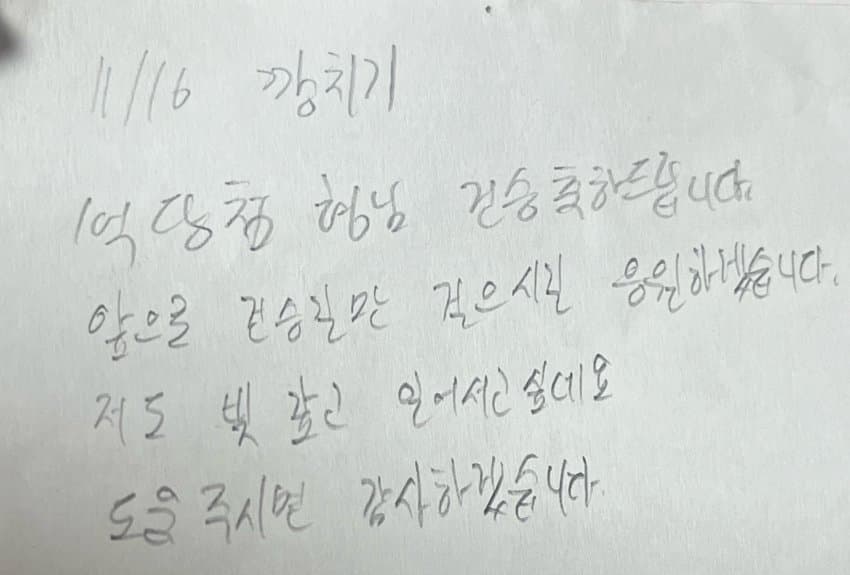 11/16 깡치기
1억 당첨 형님 건승 축하드립니다.
앞으로 건승길만 걸으시길 응원하겠습니다.
저도 빛 갚고 일어서고 싶네요
도움 주시면 감사하겠습니다.